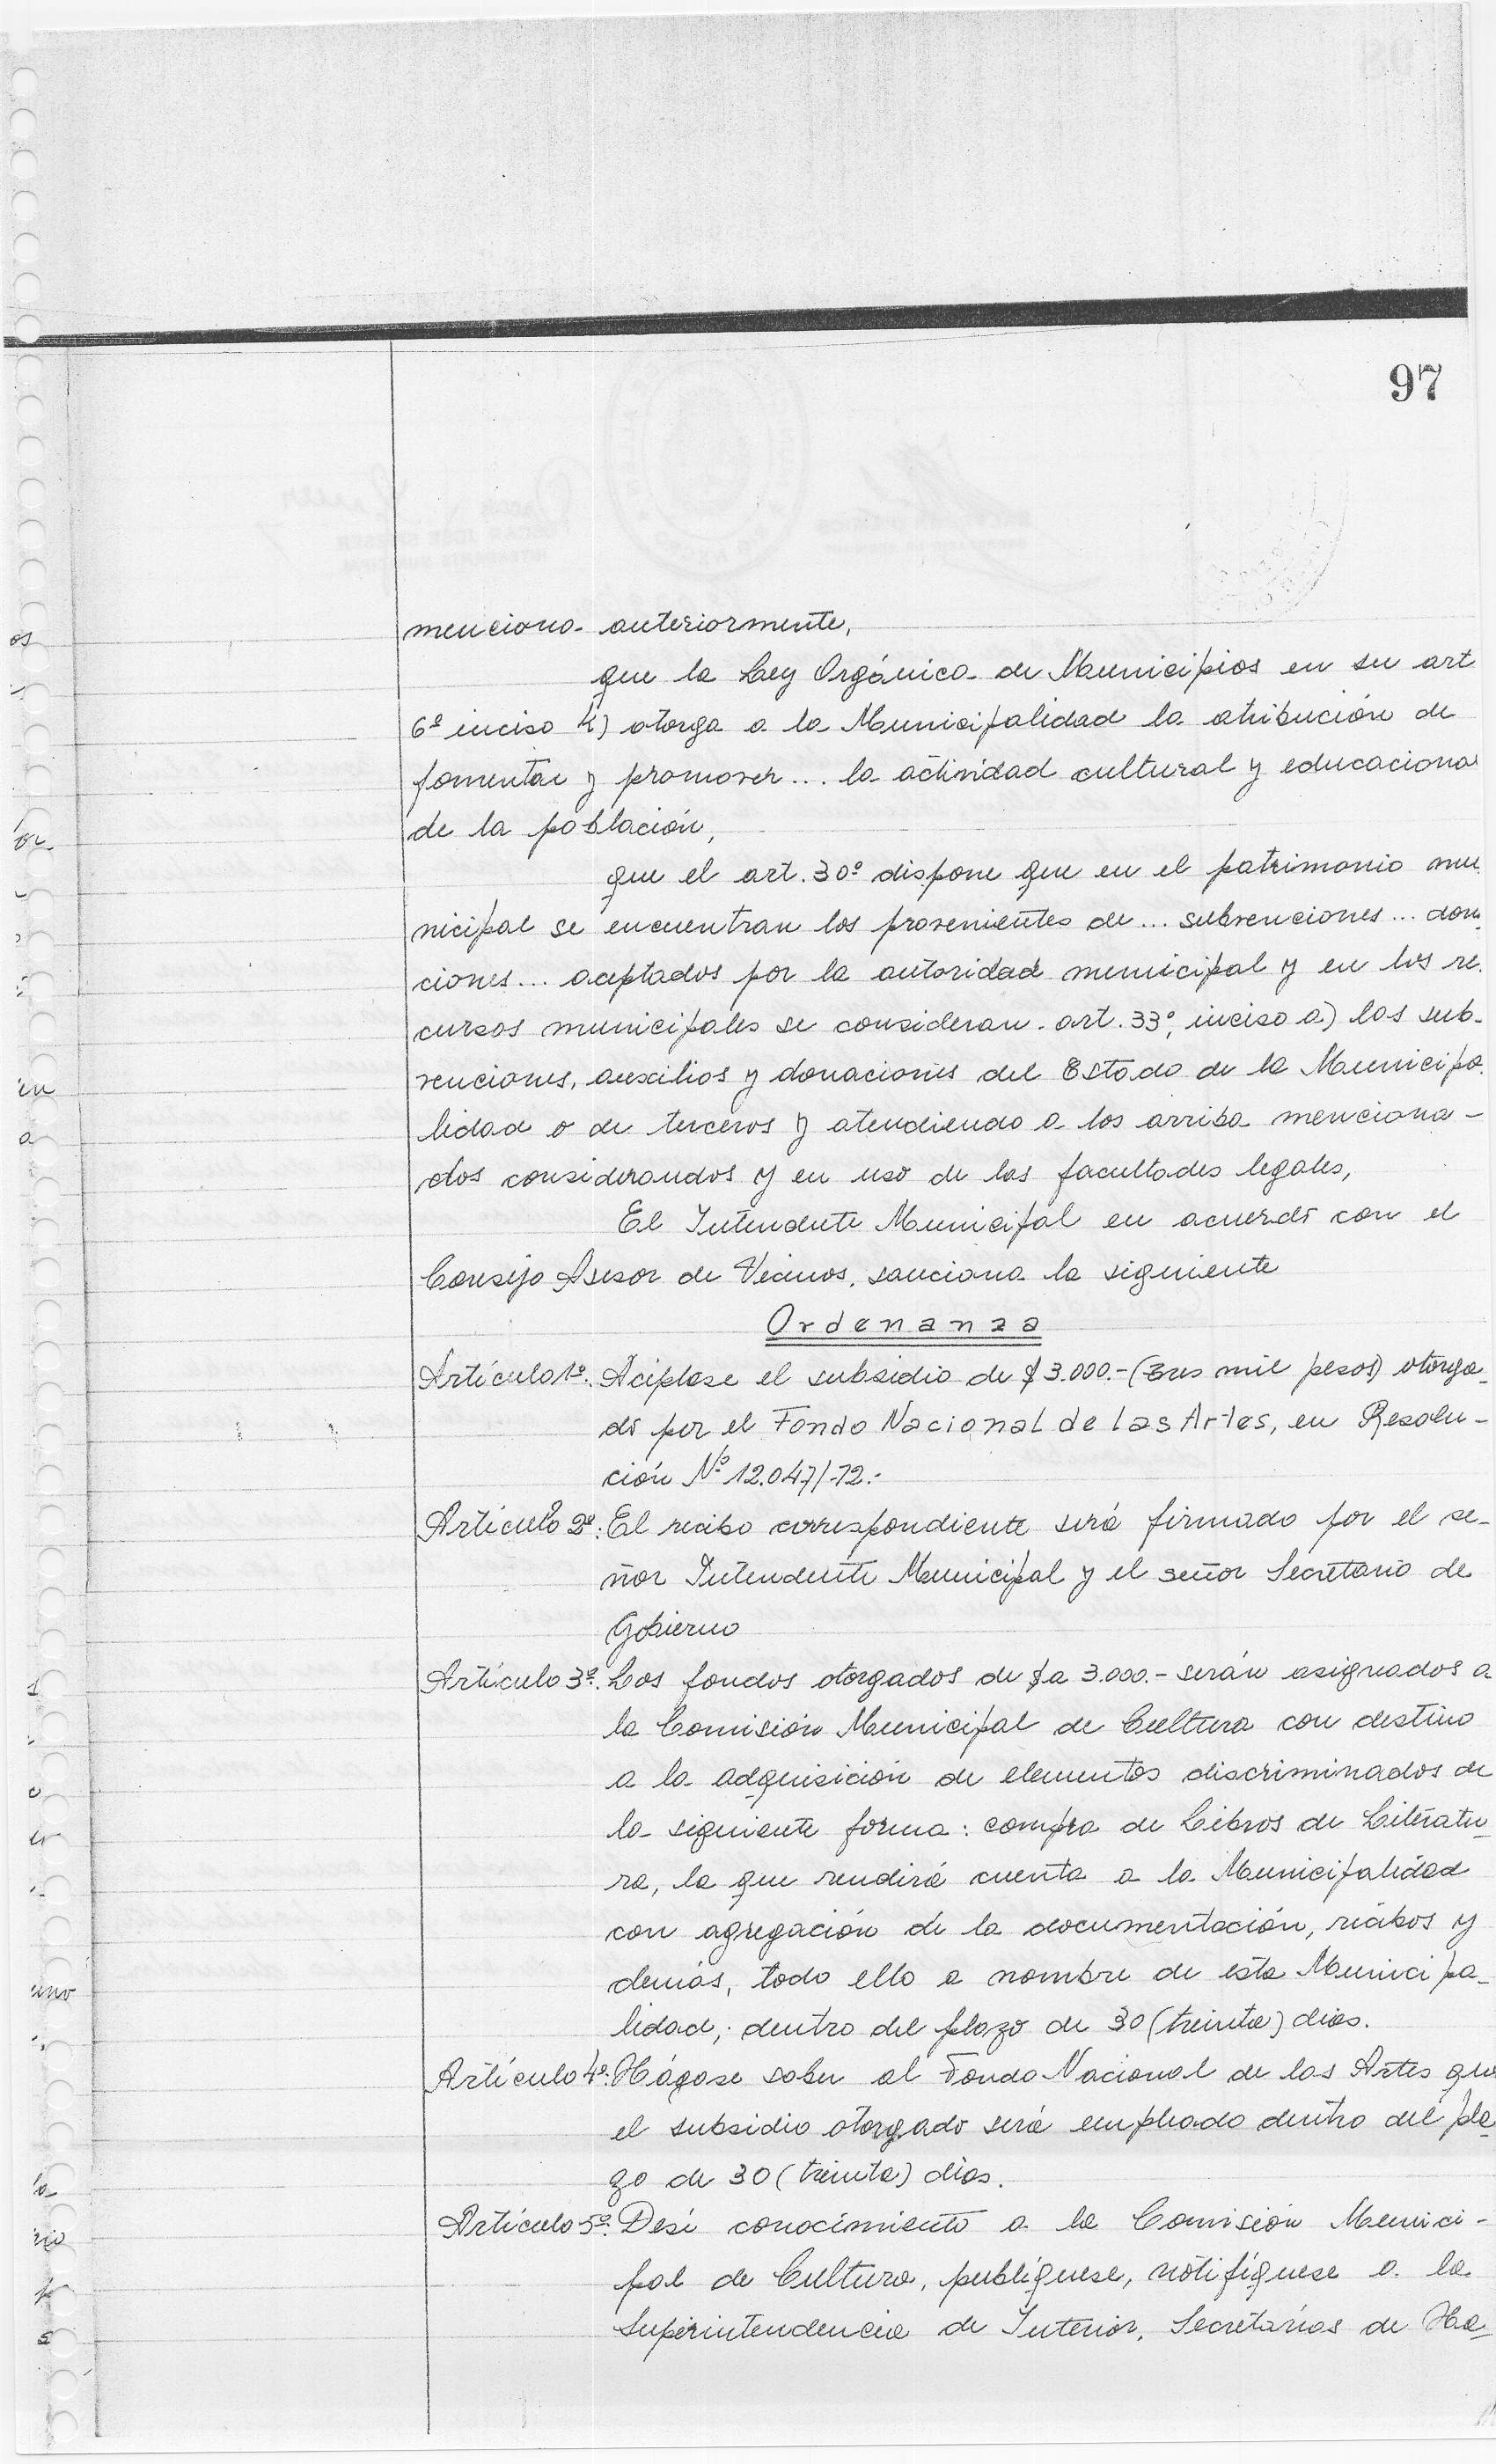 97
menciona anteriormente,
que la Ley Orgánica de Municipios en su art
6º inciso k) otorga a la Municipalidad la atribución de
fomentar y promover... la actividad cultural y educaciona
de la población,
que el art. 30º dispone que en el patrimonio mu
nicipal se encuentran los provenientes de... subvenciones... dona
ciones... aceptados por la autoridad municipal y en los re
cursos municipales se consideran - art. 33º, inciso a) las sub-
venciones, auxilios y donaciones del Estado de la Municipa
lidad o de terceros y atendiendo a los arriba menciona-
dos considerandos y en uso de las facultades legales,
El Intendente Municipal en acuerdo con el
Consejo Asesor de Vecinos, sanciona la siguiente
Ordenanza
Artículo 1º: Acéptase el subsidio de $ 3.000.- (Tres mil pesos) otorga-
do por el Fondo Nacional de las Artes, en Resolu-
ción Nº 12.047/72.-
Artículo 2º: El recibo correspondiente será firmado por el se-
ñor Intendente Municipal y el señor Secretario de
Gobierno
Artículo 3º: Los fondos otorgados de $a 3.000.- serán asignados a
la Comisión Municipal de Cultura con destino
a la adquisición de elementos discriminados de
la siguiente forma: compra de Libros de Literatu-
ra, la que rendirá cuenta a la Municipalidad
con agregación de la documentación, recibos y
demás, todo ello a nombre de esta Municipa-
lidad, dentro del plazo de 30 (treinta) dias.
Artículo 4º: Hágase saber al Fondo Nacional de las Artes que
el subsidio otorgado será empleado dentro del pla-
zo de 30 (treinta) días.
Artículo 5º: Desé conocimiento a la Comisión Munici-
pal de Cultura, publíquese, notifíquese a la
Superintendencia de Interior, Secretarios de Ha-